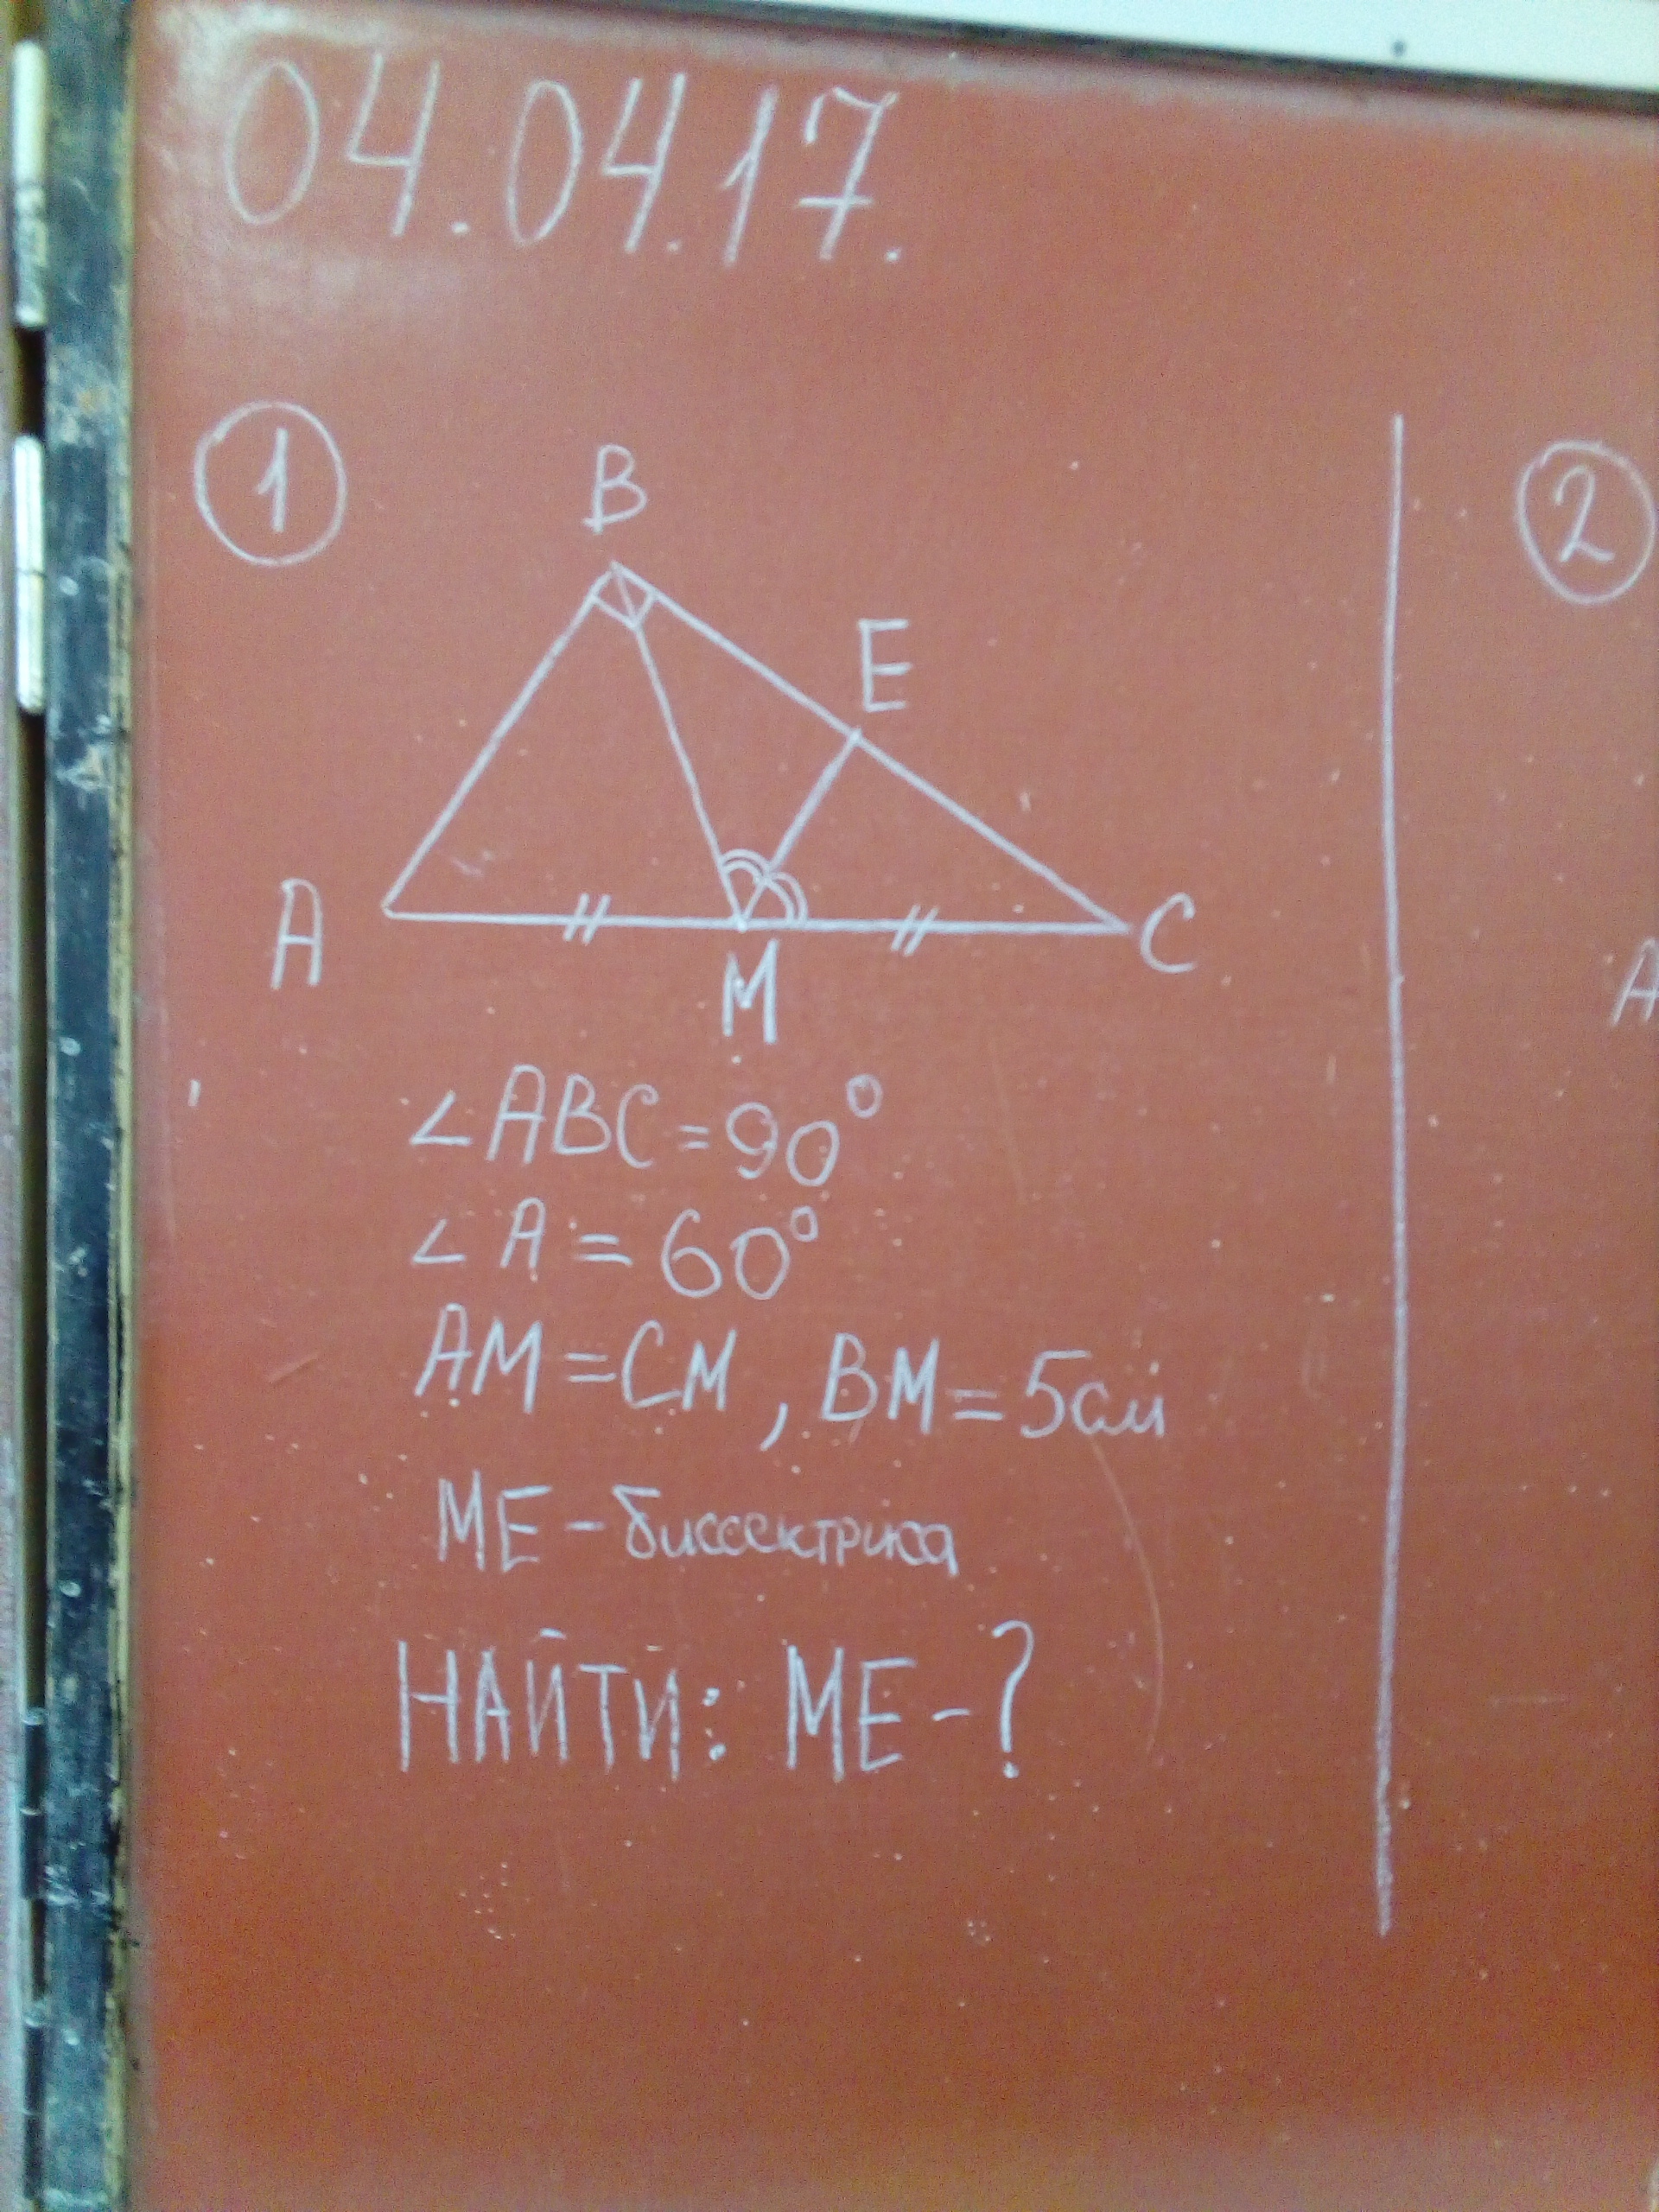 04.04.17.
1
2
B
E
A
M
C
A
∠ABC=90°
∠A=60°
AM=CM, BM=5см
ME-биссектриса
НАЙТИ: ME-?